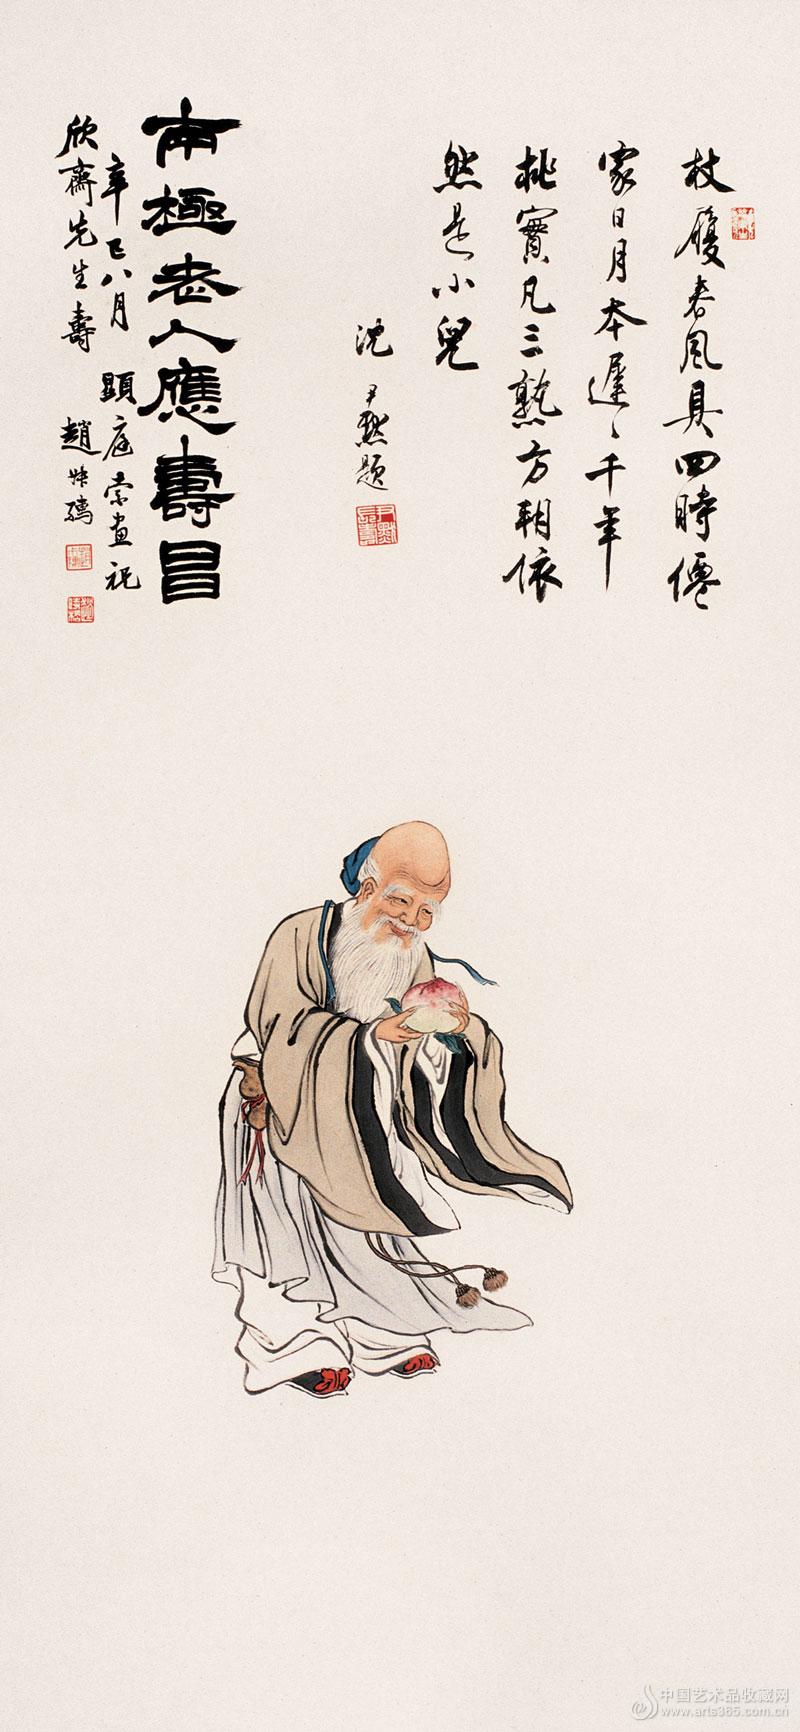 杖履春風具四時僊
家日月本遲〻千年
桃實凡三熟方朔依
然是小兒
沈尹默題
尹默
長壽
南極老人應壽昌
辛巳八月 顯庭索畫祝
欣齋先生壽 趙
中国艺术品收藏网
www.arts365.com.cn